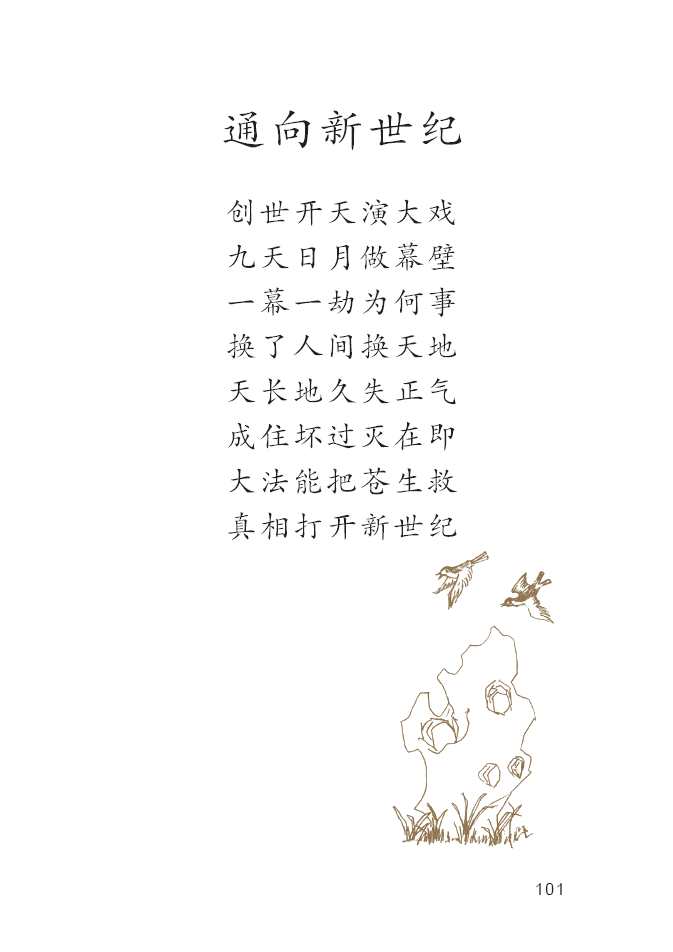 通向新世纪
创世开天演大戏
九天日月做幕壁
一幕一劫为何事
换了人间换天地
天长地久失正气
成住坏过灭在即
大法能把苍生救
真相打开新世纪
101